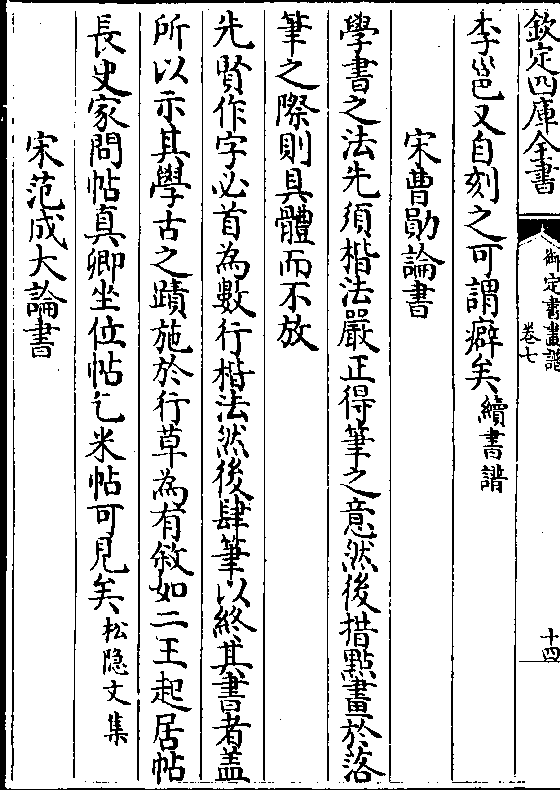 欽定四庫全書
御定書畫譜
卷七
十四
李邕又自刻之可謂癖矣續書譜
宋曹勛論書
學書之法先須楷法嚴正得筆之意然後措點畫於落
筆之際則具體而不放
先賢作字必首為數行楷法然後肆筆以終其書者蓋
所以示其學古之蹟施於行草為有敘如二王起居帖
長史家問帖真卿坐位帖乞米帖可見矣松隱文集
宋范成大論書